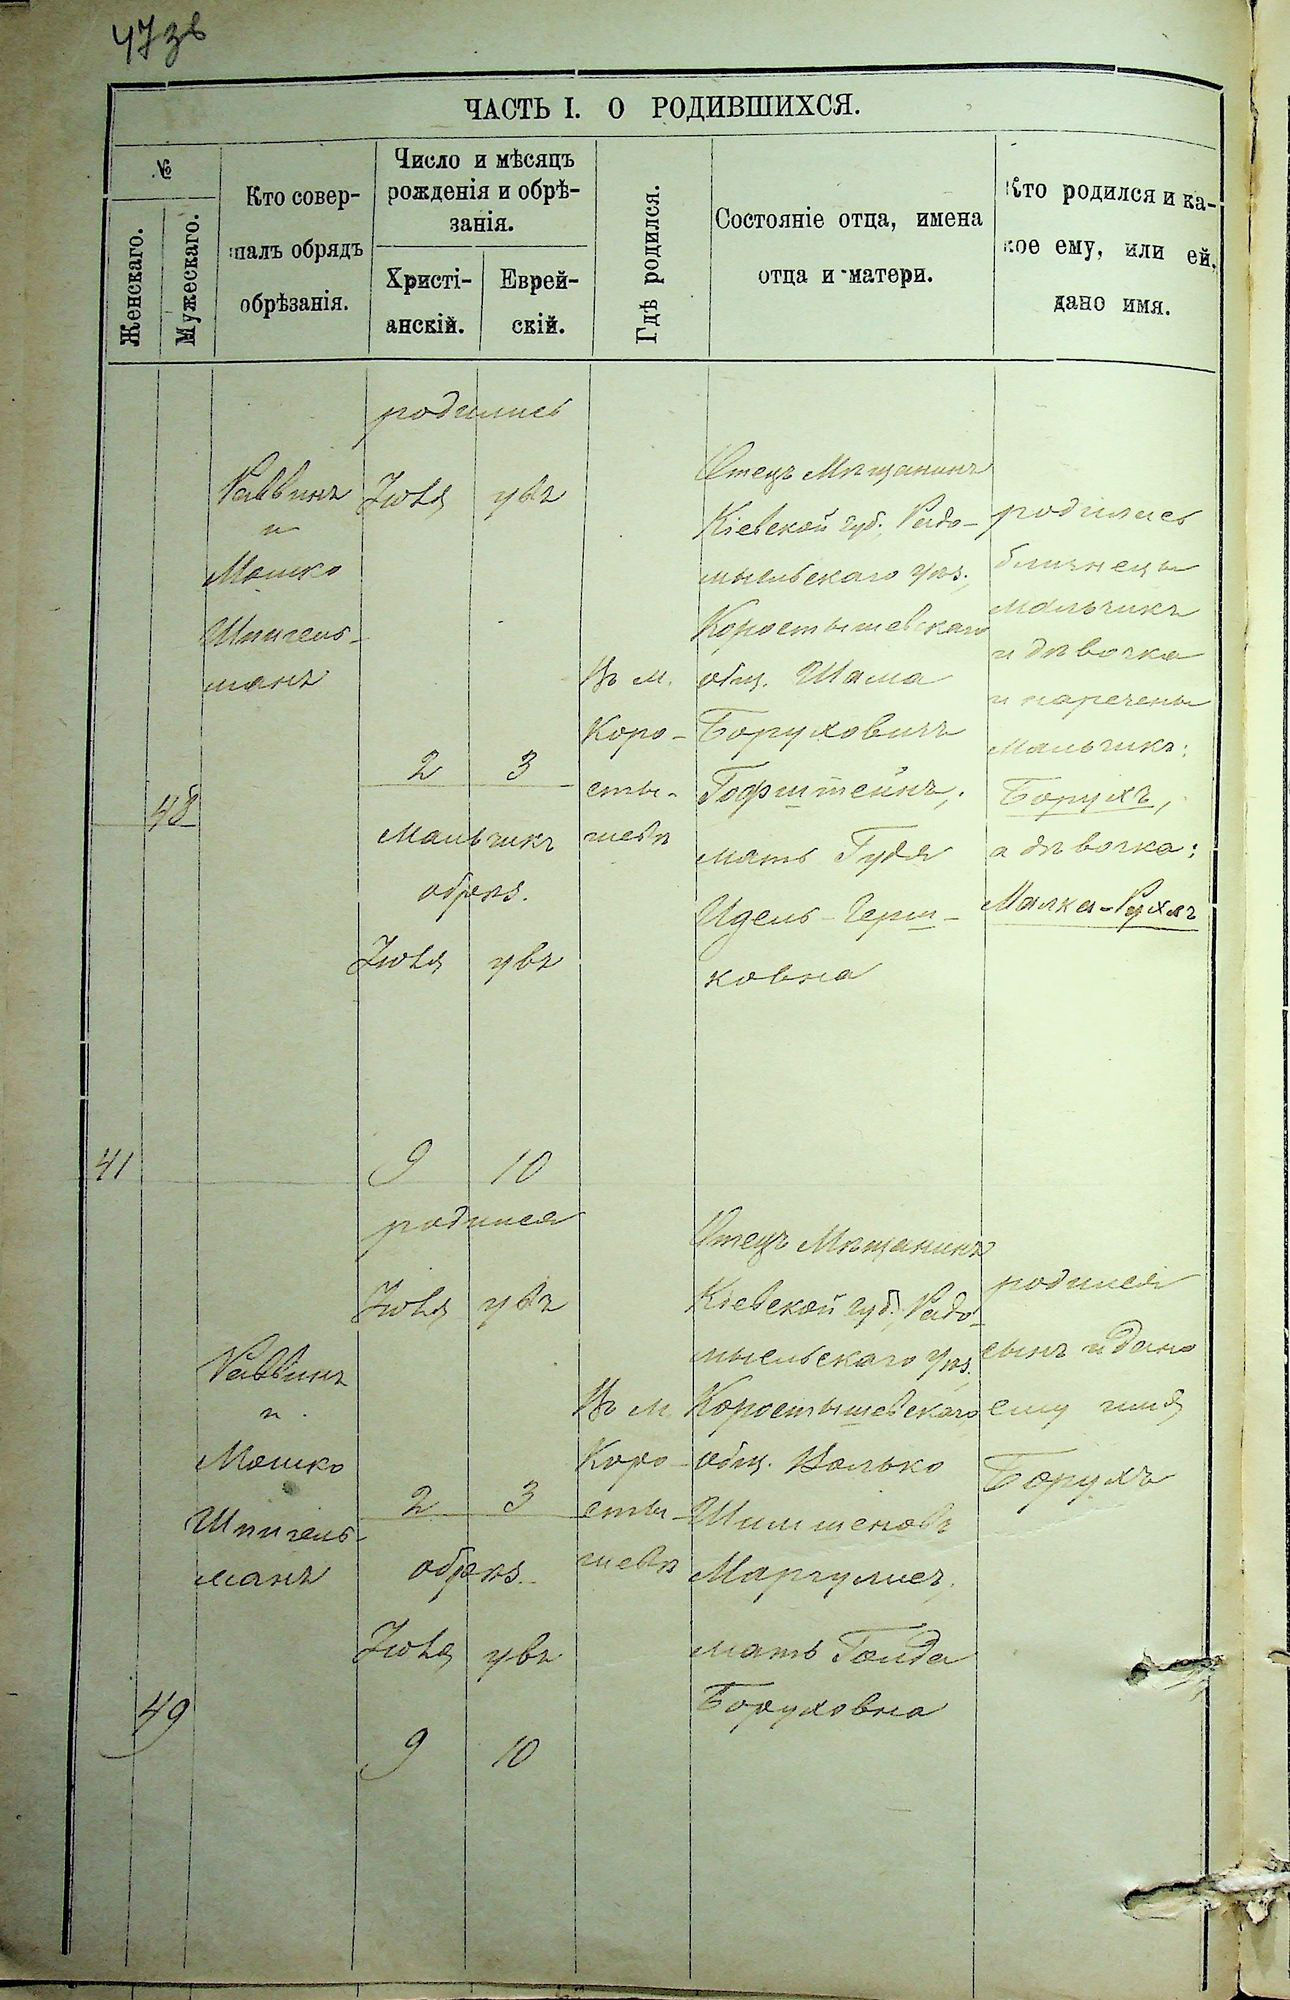 473б
ЧАСТЬ I. О РОДИВШИХСЯ.
№
Женскаго.
Мужескаго.
Кто совер-
шалъ обрядъ
обрѣзанія.
Число и мѣсяцъ
рожденія и обрѣ-
занія.
Христі-
анскій.
Еврей-
скій.
Гдѣ родился.
Состояніе отца, имена
отца и матери.
Кто родился и ка-
кое ему, или ей,
дано имя.
48
41
Раввинъ
и
Мошко
Шпигель-
манъ
родились
2
3
Мальчикъ
обрѣз.
9
10
Въ м.
Коро-
сты-
шевѣ
Отецъ Мѣщанинъ
Кіевской губ., Радо-
мысльскаго уѣз.,
Коростышевскаго
общ. Шама
Боруховичъ
Гофштейнъ,
мать Гудя
Идель-Герш-
ковна
родились
близнецы
мальчикъ
и дѣвочка
и наречены
мальчикъ:
Борухъ,
а дѣвочка:
Малка-Рухль
49
Раввинъ
и
Мошко
Шпигель-
манъ
родился
2
3
обрѣз.
9
10
Въ м.
Коро-
сты-
шевѣ
Отецъ Мѣщанинъ
Кіевской губ., Радо-
мысльскаго уѣз.
Коростышевскаго
общ. Волько
Шимшоновъ
Маргулисъ,
мать Голда
Боруховна
родился
сынъ и дано
ему имя
Борухъ